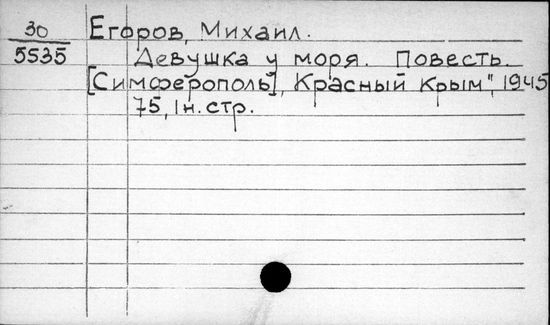 30 Егоров, Михаил.
5535 Девушка у моря. Повесть.
[Симферополь], Красный Крым", 1945
75, 1 н. стр.